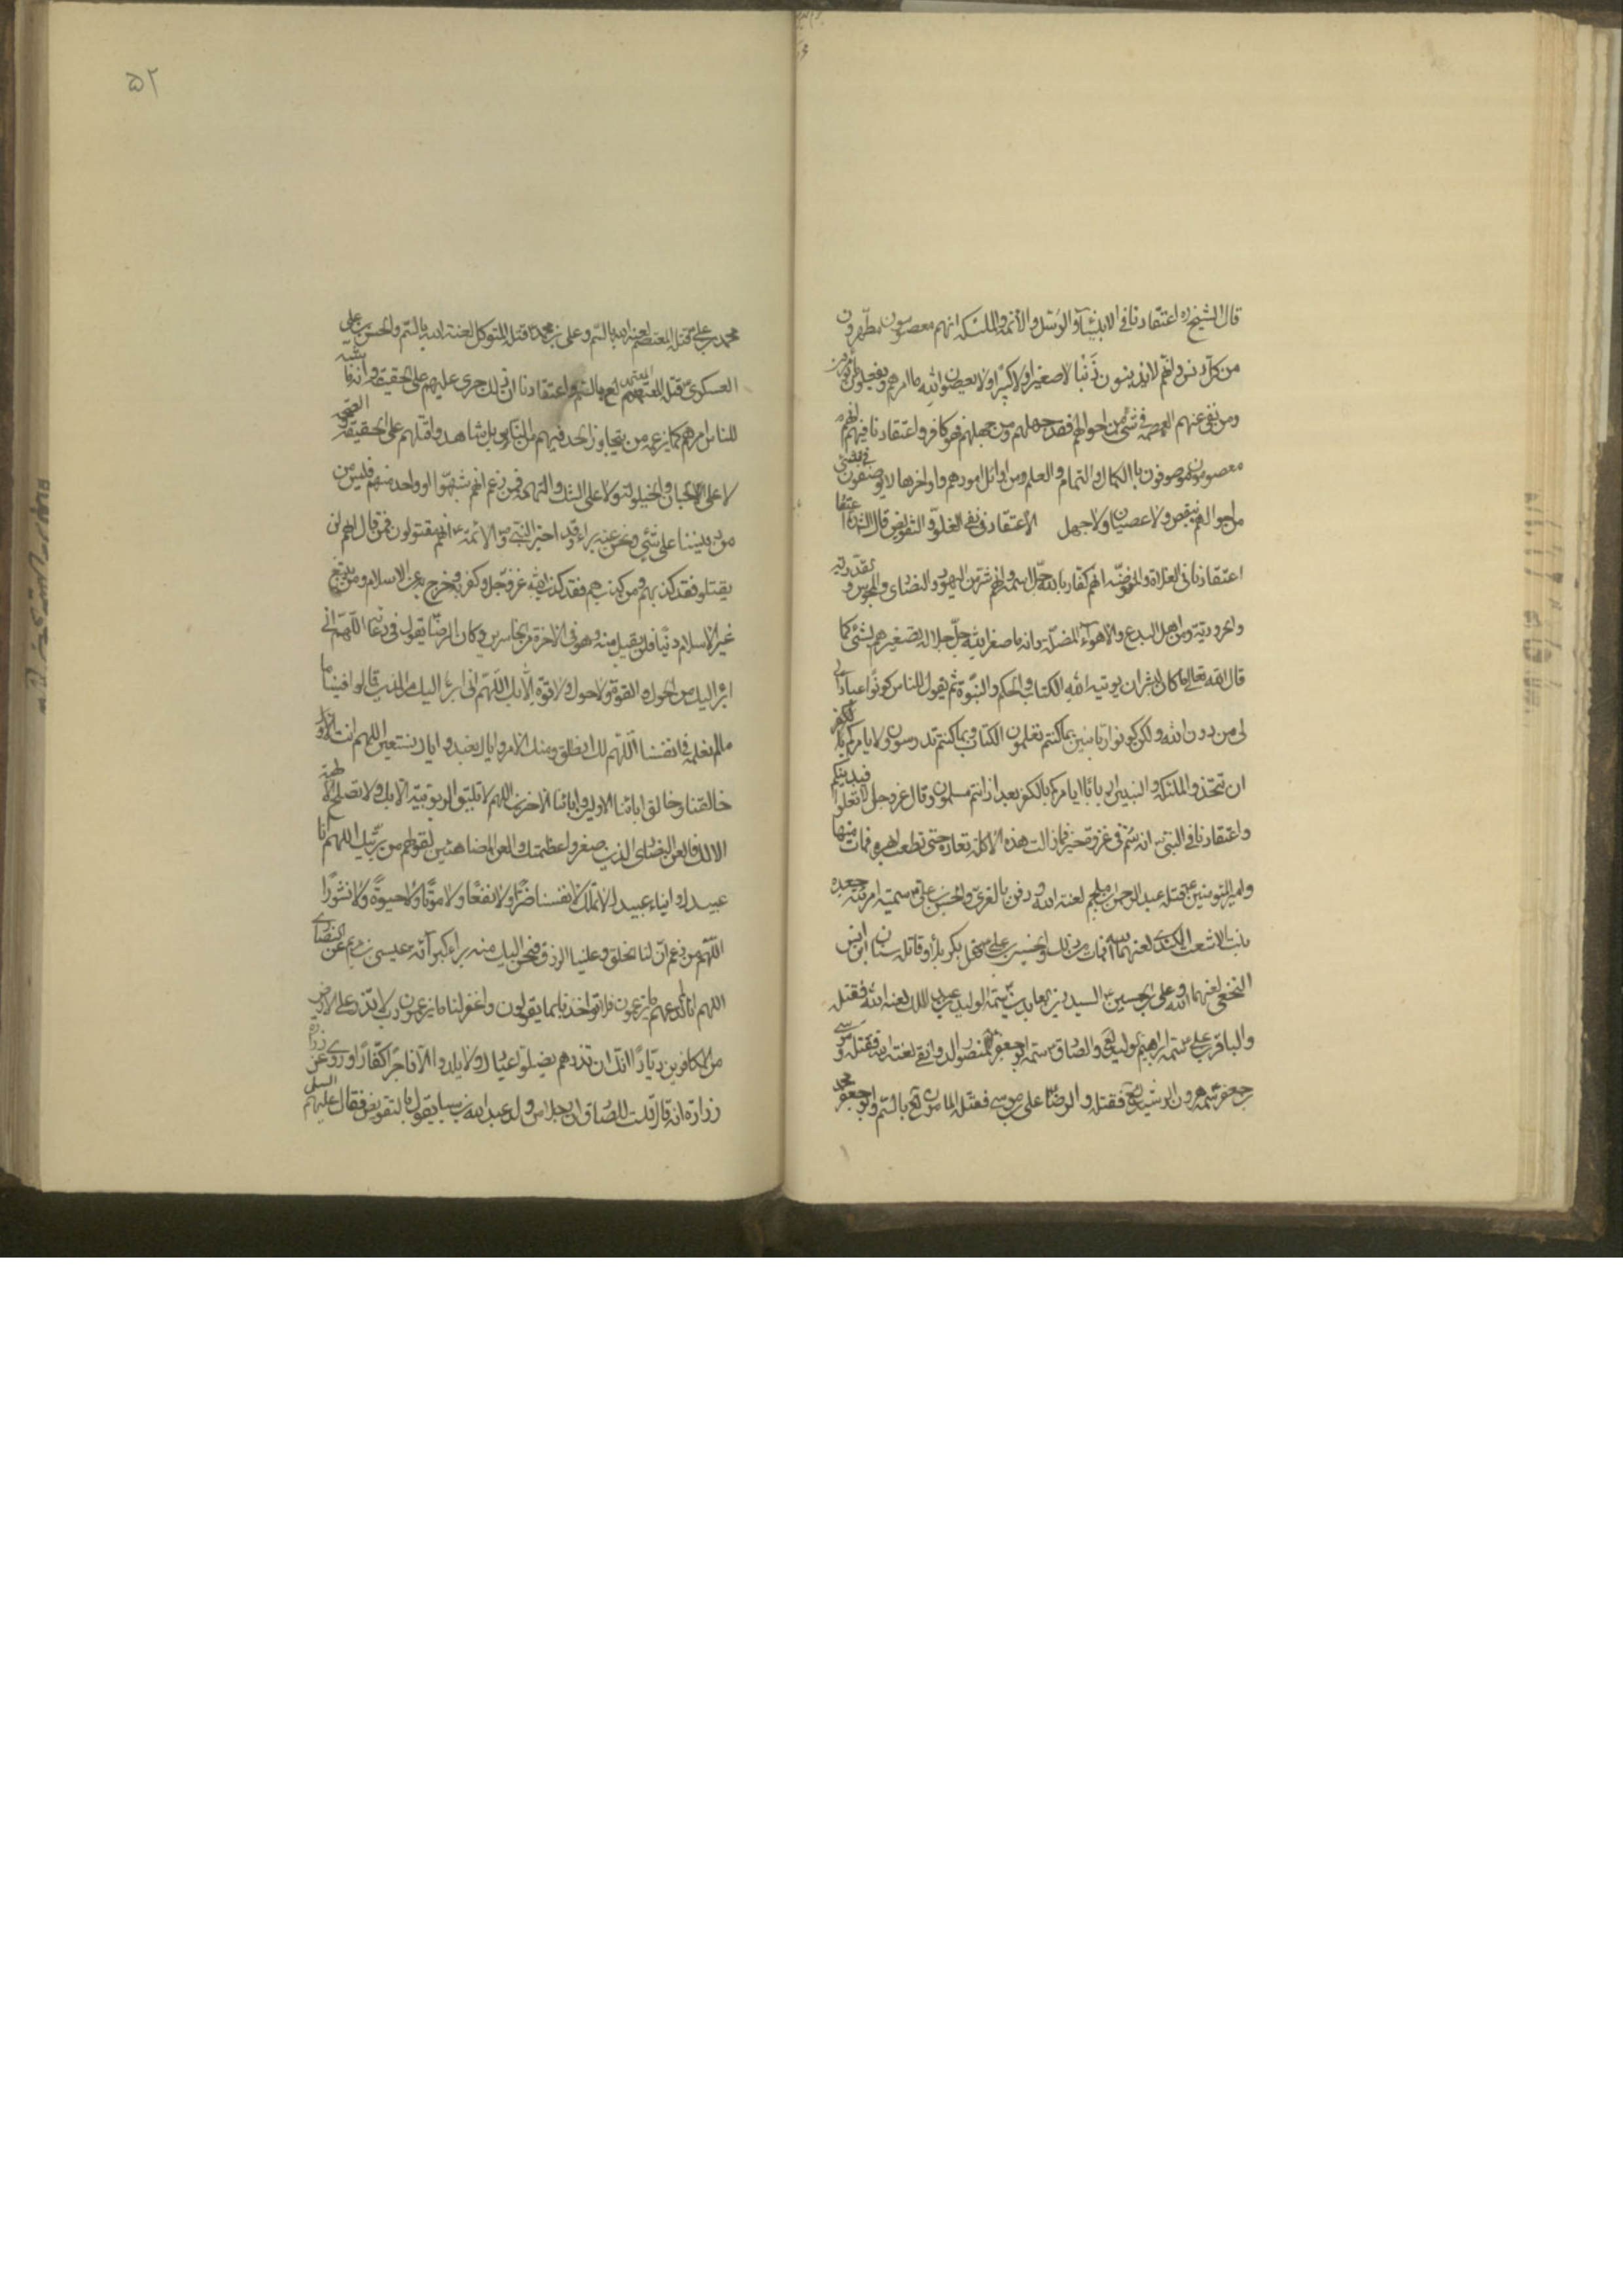 قال الشيخ ره اعتقادنا فى الانبيآء والرسل والأئمة والملئكه انهم معصومون مطهرون
من كل دنس وانهم لا يذنبون ذنبا لا صغيرا ولا كبيرا ولا يعصون الله ما امرهم ويفعلون ما يؤمرون
ومن نفى عنهم العصمة فى شئ من احوالهم فقد جهلهم ومن جهلهم فهو كافر واعتقادنا فيهم انهم
معصومون موصوفون بالكمال والتمام والعلم ومن اوائل امورهم واواخرها لا يوصفون فى شئ
من احوالهم بنقص ولا عصيان ولا جهل الأعتقاد فى نفى الغلو والتفويض قال الشيخ ره
اعتقادنا فى الغلاة والمفوضة انهم كفار بالله جل اسمه وانهم شر من اليهود والنصاى والمجوس و القدرية
والحرورية ومن اهل البدع والأهوآء المضلة وانه ما صغر الله جل جلاله تصغيرهم بشئ كما
قال الله تعالى ما كان لبشر ان يوتيه الله الكتاب والحكم والنبوة ثم يقول للناس كونوا عبادا
لى من دون الله ولكن كونوا ربانيين بما كنتم تعلمون الكتاب وبما كنتم تدرسون ولا يامركم
ان تتخذوا الملئكة والنبيين اربابا ايامركم بالكفر بعد اذ انتم مسلمون وقال عز وجل لا تغلوا فى دينكم
واعتقادنا فى النبى انه سم فى غزوة خيبر فما زالت هذه الأكلة تعاده حتى قطعت ابهره فمات منها
وامير المؤمنين ع قتله عبد الرحمن بن ملجم لعنه الله ودفن بالغرى والحسن بن على ع سمته امرئته جعده
بنت الاشعث الكندى لعنهما الله فمات من ذلك والحسين بن على ع قتل بكربلا وقاتله سنان ابن انس
النخعى لعنهما الله وعلى بن الحسين ع السيد زين العابدين سمه الوليد بن عبد الملك لعنه الله فقتله
والباقر بن على ع سمه ابراهيم بن وليد لع والصادق ع سمه ابو جعفر المنصور الدوانقى لعنه الله فقتله و موسى
بن جعفر سمه هرون الرشيد لع فقتله والرضا على بن موسى فقتله المامون لع بالسم وابو جعفر محمد
۵۲
محمد بن على ع قتله المعتصم لعنه الله بالسم وعلى بن محمد ع قتله المتوكل لعنه الله بالسم والحسن بن على
العسكرى ع قتله المعتمد لع بالسم واعتقادنا ان ذلك جرى عليهم على الحقيقة وانه ما شبه
للناس امرهم كما يزعمه من يتجاوز الحد فيهم من الناس بل شاهدوا قتلهم على الحقيقة
لا على الحسبان والخيلولة ولا على الشك والتهمة فمن زعم انهم شبهوا او واحد منهم فليس من
من ديننا على شئ ونحن عنه براء وقد اخبر النبى ص والائمة ع انهم مقتولون فمن قال انهم لن
يقتلو فقد كذبهم ومن كذبهم فقد كذب الله عز وجل وكفر به وخرج به عن الاسلام ومن يبتغ
غير الاسلام دينا فلن يقبل منه وهو فى الاخرة من الخاسرين وكان الرضا يقول فى دعائه اللهم انى
ابرء اليك من الحول والقوة ولا حول ولا قوة الا بك اللهم انى ابرء اليك من الذين قالوا فينا ما
ما لم نعلمه فى انفسنا اللهم لك الخلق ومنك الامر واياك نعبد واياك نستعين اللهم انت
خالقنا وخالق ابائنا الاولين وابائنا الاخرين اللهم لا تليق الربوبية الا بك ولا تصلح الالهية
الا لك فالعن النصارى الذين صغروا عظمتك والعن المضاهئين لقولهم من بريتك اللهم انا
عبيدك وابناء عبيدك لا نملك لانفسنا ضرا ولا نفعا ولا موتا ولا حيوة ولا نشورا
اللهم من زعم ان لنا الخلق وعلينا الرزق فنحن اليك منه براء كبرآئة عيسى بن مريم عن النصارى
اللهم انا لم ندعهم الى ما يزعمون فلا تواخذنا بما يقولون واغفر لنا ما يزعمون رب لا تذر على الارض
من الكافرين ديارا انك ان تذرهم يضلو عبادك ولا يلدوا الا فاجرا كفارا وروى عن
زرارة انه قال قلت للصادق ان رجلا من ولد عبد الله بن سبا يقول بالتفويض فقال عليهم السلم